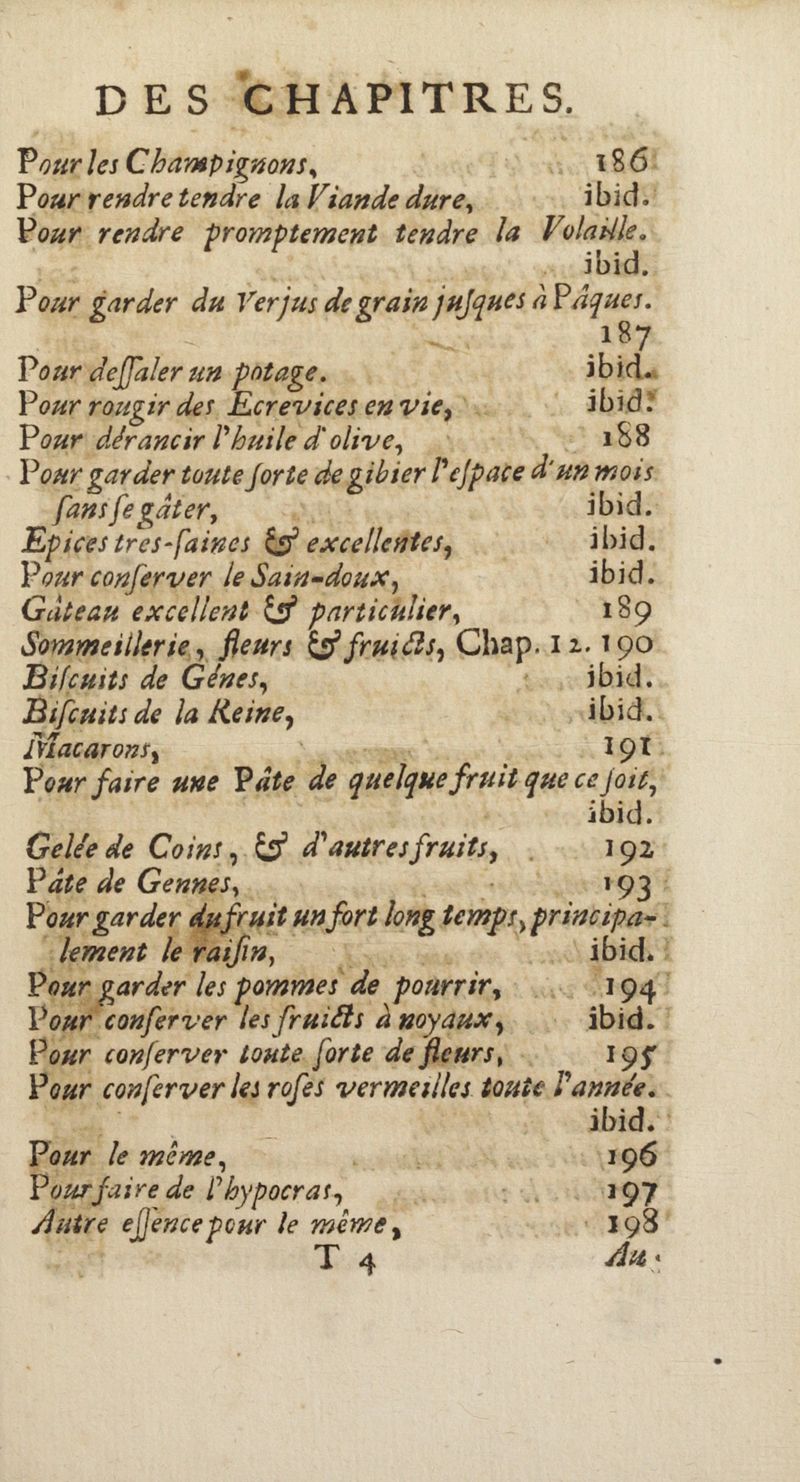 DES CHAPITRES.
Pour les Champignons, 186
Pour rendre tendre la Viande dure, ibid.
Pour rendre promptement tendre la Volaille.
ibid.
Pour garder du Verjus de grain juſques à Pâques.
187
Pour deſſaler un potage. ibid.
Pour rougir des Ecrevices en vie, ibid.
Pour dérancir l'huile d'olive, 188
Pour garder toute ſorte de gibier l'eſpace d'un mois
ſans ſe gâter, ibid.
Epices tres-ſaines & excellentes, ibid.
Pour conſerver le Sain-doux, ibid.
Gâteau excellent & particulier, 189
Sommeillerie, fleurs & fruicts, Chap. 12. 190
Biſcuits de Génes, ibid.
Biſcuits de la Reine, ibid.
Macarons, 191
Pour faire une Pâte de quelque fruit que ce ſoit,
ibid.
Gelée de Coins, & d'autres fruits, 192
Pâte de Gennes, 193
Pour garder du fruit un fort long temps, principa-
lement le raiſin, ibid.
Pour garder les pommes de pourrir, 194
Pour conſerver les fruicts à noyaux, ibid.
Pour conſerver toute ſorte de fleurs, 195
Pour conſerver les roſes vermeilles toute l'année.
ibid.
Pour le même, 196
Pour faire de l'hypocras, 197
Autre eſſence pour le même, 198
T 4 Au-